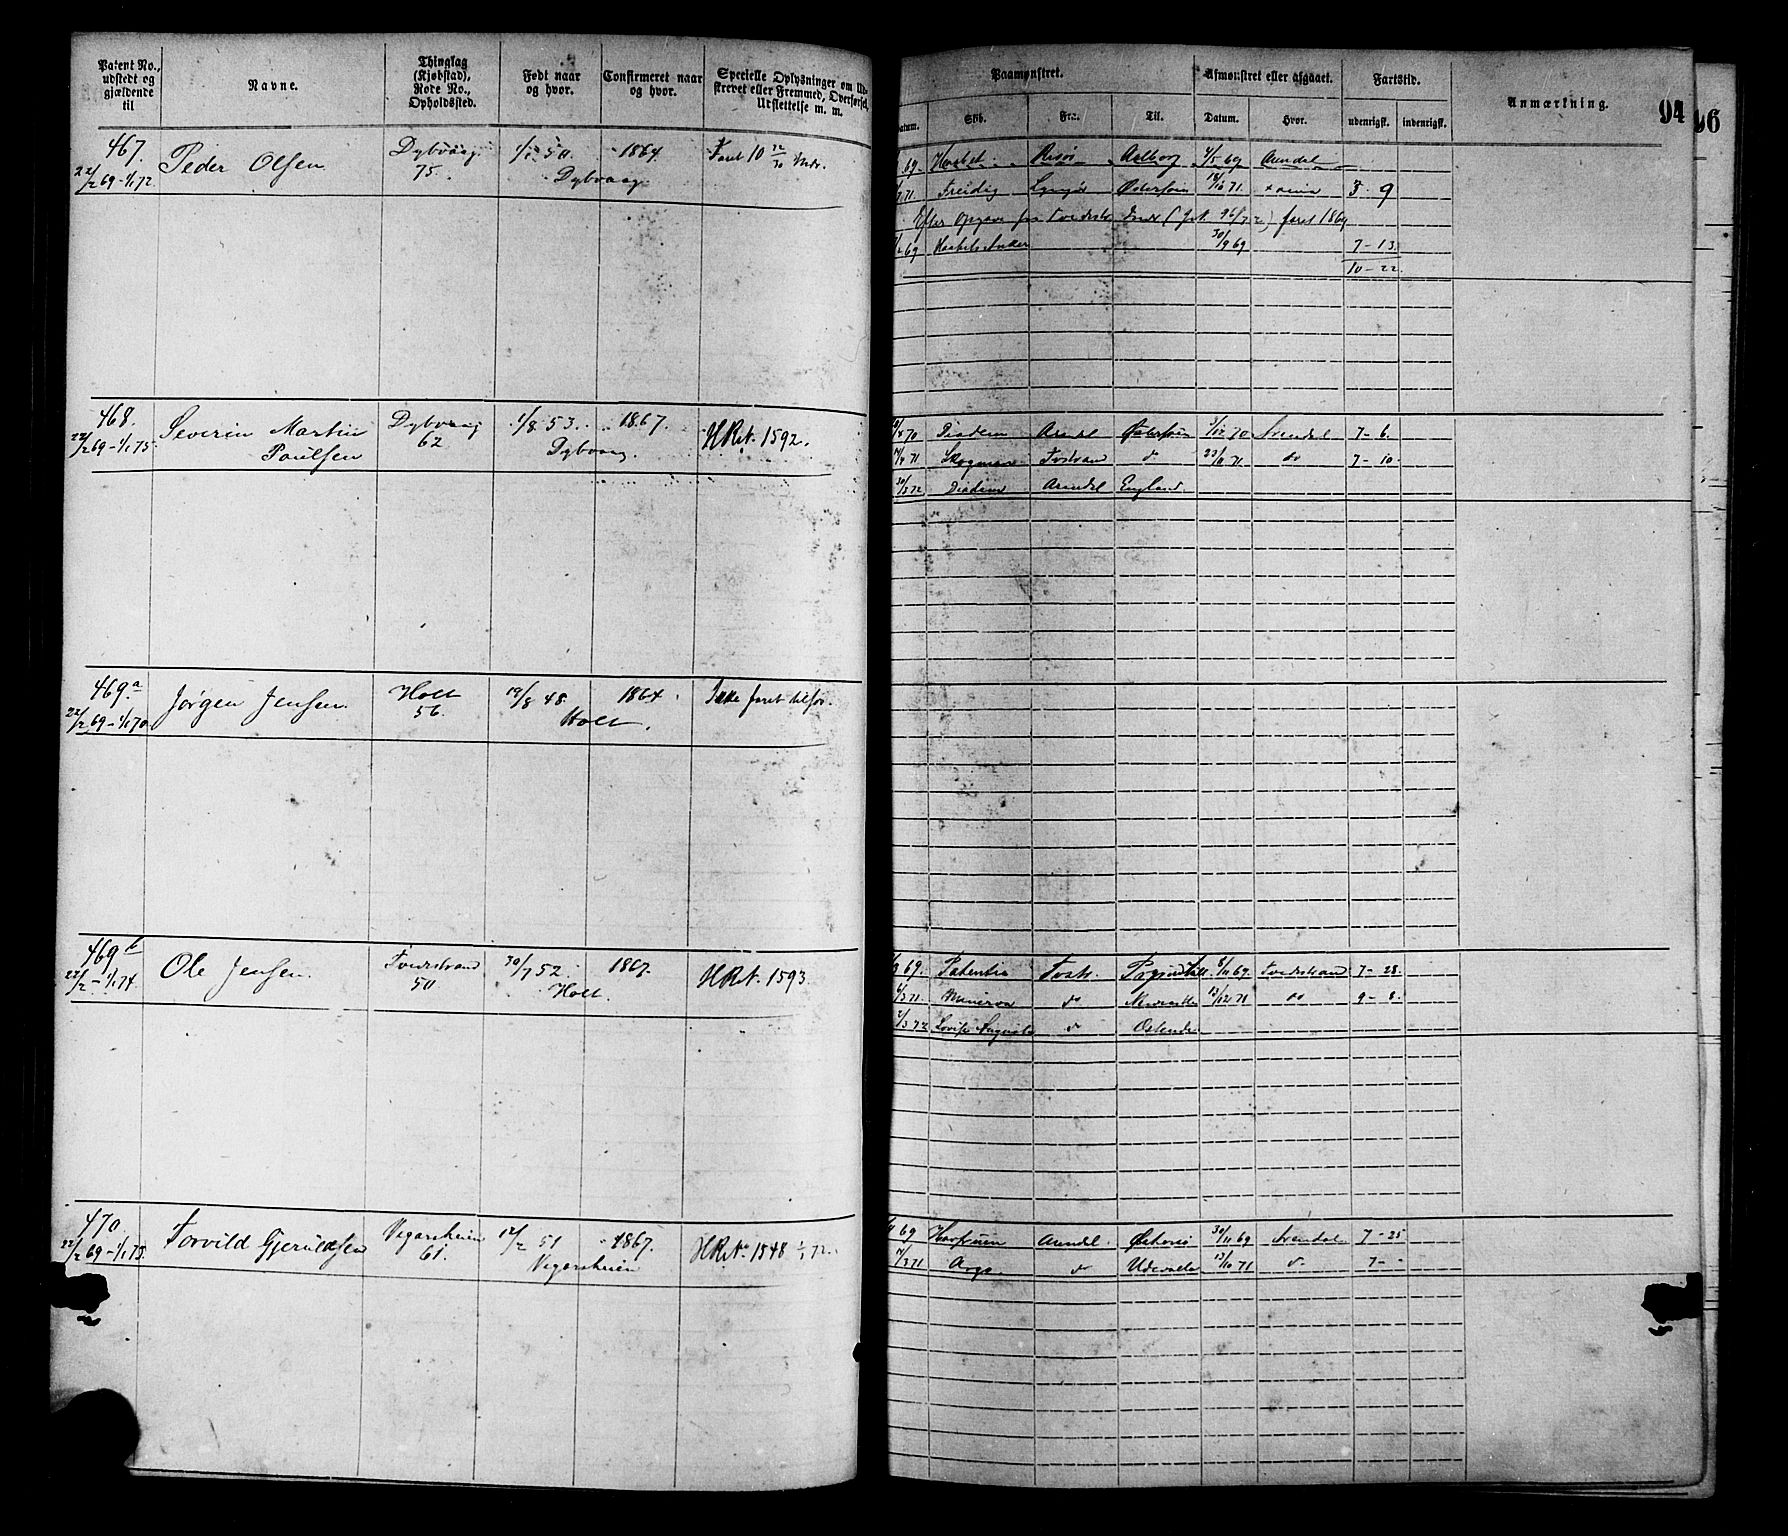 Patent No., udstedt og gjældende til
Navne.
Thinglag (Kjøbstad), Rode No., Opholdssted.
Født naar og hvor.
Confirmeret naar og hvor.
Specielle Oplysninger om Ud-
skrevet eller Fremmed, Overførsel,
Udslettelse m. m.
Paamønstret.
Afmønstret eller afgaaet.
Fartstid.
Anmærkning.
94
Datum. Skib. Fra. Til. Datum. Hvor. udenrigsk. indenrigsk.
467.
22/2 69 - 1/1 72.
Peder Olsen
Dybvaag
75.
50.
1864
Dybvaag
Faret 10 22/30 Mdr.
69 Risør Aalborg 4/5 69 Arendal
71. Freidig Lyngør Østersøen 18/10 71. 3 9
Efter Opgave fra Tvedestr. faret 1869
69 30/9 69 7 - 13.
10 - 22.
468.
22/2 69 - 1/1 75.
Severin Martin
Paulsen
Dybvaag
62
1/8 53.
1867.
Dybvaag.
HRet. 1592.
70 Diadem Arendal Østersøen 70 Arendal 7 - 6.
71 Skogman Tvstrand do 71 do 7 - 10.
30/3 72 Diadem Arendal England.
469.a
22/2 69 - 1/1 70.
Jørgen Jensen.
Holt
56.
19/8 48
1864.
Holt.
Ikke faret tilsøs.
469 b
22/2 - 1/1 74
Ole Jensen.
Tvedestrand
50
30/7 52.
1867.
Holt.
HRet. 1593.
69. Tvstr. 8/11 69. Tvedestrand 7 - 28.
6/3 71 Minerva do Newcastle 13/12 71 do 9 - 8.
2/3 72 Lovise Augusta do Ostende
470.
22/2 69 - 1/1 75.
Torvild Gjeruldsen
Vegarsheien
61.
12/2 51
1867.
Vegarsheien
HRet. 1548 1/1 72.
69 Arendal. Østersø 30/11 69 Arendal 7 - 25
71 Argo. do Udevalla 13/10 71 do 7 - -